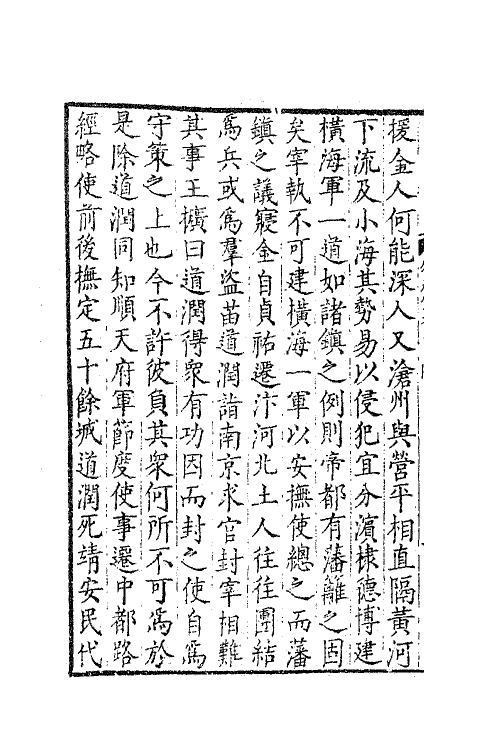 援金人何能深入又滄州與營平相直隔黃河
下流及小海其勢易以侵犯宜分濵棣德博建
橫海軍一道如諸鎮之例則帝都有藩籬之固
矣宰執不可建橫海一軍以安撫使總之而藩
鎮之議寢金自貞祐遷汴河北土人往往團結
爲兵或爲羣盗苗道潤詣南京求官封宰相難
其事王擴曰道潤得衆有功因而封之使自爲
守策之上也今不許彼負其衆何所不可爲於
是除道潤同知順天府軍節度使事遷中都路
經略使前後撫定五十餘城道潤死靖安民代